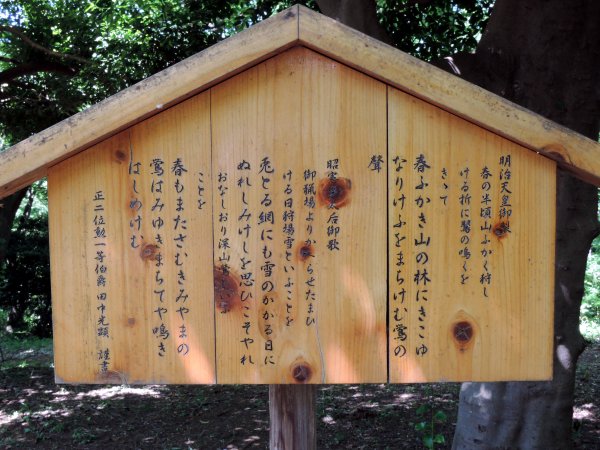 明治天皇御製
春の半頃山ふかく狩し
ける折に鶯の鳴くを
きゝて
春ふかき山の林にきこゆ
なりけふをまちけむ鶯の
聲
昭憲皇太后御歌
御猟場よりかへらせたまひ
ける日狩場雪といふことを
兎とる網にも雪のかかる日に
ぬれしみけしを思ひこそやれ
おなしおり深山鶯といふ
ことを
春もまたさむきみやまの
鶯はみゆきまちてや鳴き
はしめけむ
正二位勲一等伯爵 田中光顕 謹書